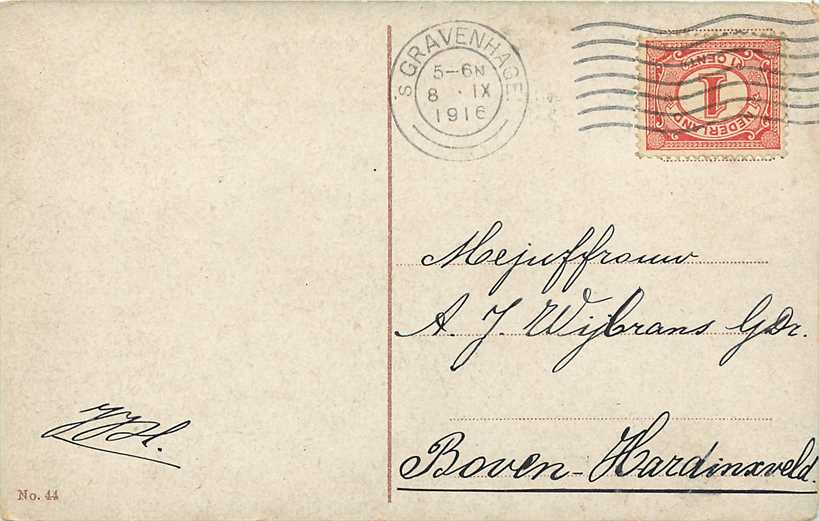 'S GRAVENHAGE
5-6N
8 · IX
1916
1 CENT
1
NEDERLAND
Mejuffrouw
A. J. Wijbrans GDr.
Boven-Hardinxveld.
No. 44